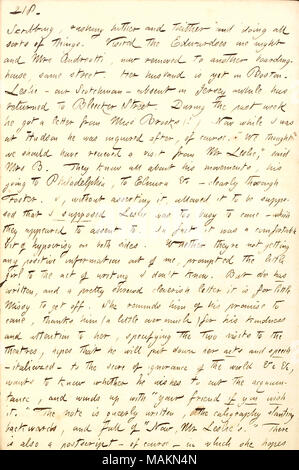 218.
Scribbling, rushing hither and thither and doing all
sorts of things. Visited the Edwardses one night
and Mrs Andreotti, now removed to another boarding-
house, same street. Her husband is yet in Boston.
Leslie — our Scotchman — absent in Jersey awhile has
returned to Bleecker Street. During the past week
he got a letter from Miss Brooks! Now while I was
at Hudson he was inquired after, of course. "We thought
we should have received a visit from Mr Leslie," said
Mrs B. They know all about his movements, his
going to Philadelphia, to Elmira &c — clearly through
Foster. I, without asserting it, allowed it to be suppo-
sed that I supposed Leslie was too busy to come — which
they appeared to assent to. In fact it was a comfortable
bit of hypocrisy on both sides. Whether they're not getting
any positive information out of me, prompted the little
girl to the act of writing I don't know. But she has
written, and a pretty shrewd cleverish letter it is for little
Missy to get off. She reminds him of his promise to
come, thanks him (a little overmuch) for his kindness
and attention to her, specifying the two visits to the
theatres, hopes that he will put down her acts and speech
— italicised — to the score of ignorance of the world &c &c,
wants to know whether he wishes to cut the acquain-
tance, and winds up with "your friend if you wish
it." The note is queerly written, the caligraphy slanting
backwards, and full of "Now, Mr Leslie's." There
is also a postscript — of course — in which she hopes
alamy
Image ID: MAKN4N
www.alamy.com